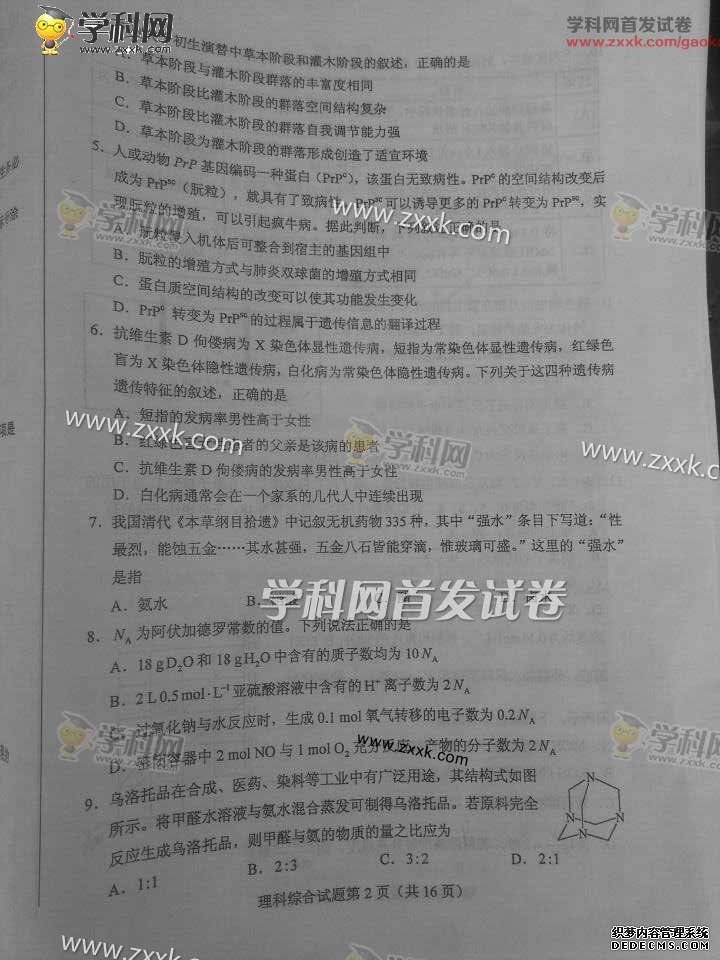 学科网
学科网首发试卷
www.zxxk.com/gaok
初生演替中草本阶段和灌木阶段的叙述，正确的是
A．草本阶段与灌木阶段群落的丰富度相同
B．草本阶段比灌木阶段的群落空间结构复杂
C．草本阶段比灌木阶段的群落自我调节能力强
D．草本阶段为灌木阶段的群落形成创造了适宜环境
5．人或动物 PrP 基因编码一种蛋白（PrPᶜ），该蛋白无致病性。PrPᶜ的空间结构改变后
成为 PrPˢᶜ（朊粒），就具有了致病性。PrPˢᶜ可以诱导更多的 PrPᶜ转变为 PrPˢᶜ，实
现朊粒的增殖，可以引起疯牛病。据此判断，下列 正确的是
www.zxxk.com
A．朊粒 入机体后可整合到宿主的基因组中
B．朊粒的增殖方式与肺炎双球菌的增殖方式相同
C．蛋白质空间结构的改变可以使其功能发生变化
D．PrPᶜ 转变为 PrPˢᶜ的过程属于遗传信息的翻译过程
6．抗维生素 D 佝偻病为 X 染色体显性遗传病，短指为常染色体显性遗传病，红绿色
盲为 X 染色体隐性遗传病，白化病为常染色体隐性遗传病。下列关于这四种遗传病
遗传特征的叙述，正确的是
A．短指的发病率男性高于女性
www.zxxk.com
B．红绿色盲 者的父亲是该病的患者
学科网
zxxk.com
www.zxxk.com
C．抗维生素 D 佝偻病的发病率男性高于女性
D．白化病通常会在一个家系的几代人中连续出现
7．我国清代《本草纲目拾遗》中记叙无机药物 335 种，其中“强水”条目下写道：“性
最烈，能蚀五金……其水甚强，五金八石皆能穿滴，惟玻璃可盛。”这里的“强水”
是指
学科网首发试卷
A．氨水
B．
8．N_A 为阿伏加德罗常数的值。下列说法正确的是
A．18 g D₂O 和 18 g H₂O 中含有的质子数均为 10 N_A
B．2 L 0.5 mol·L⁻¹ 亚硫酸溶液中含有的 H⁺ 离子数为 2 N_A
C．过氧化钠与水反应时，生成 0.1 mol 氧气转移的电子数为 0.2 N_A
D．密闭容器中 2 mol NO 与 1 mol O₂ 充分反应，产物的分子数为 2 N_A
www.zxxk.com
9．乌洛托品在合成、医药、染料等工业中有广泛用途，其结构式如图
所示。将甲醛水溶液与氨水混合蒸发可制得乌洛托品。若原料完全
反应生成乌洛托品，则甲醛与氨的物质的量之比应为
N
N
N
N
A．1:1
B．2:3
C．3:2
D．2:1
理科综合试题第 2 页（共 16 页）
www.zxxk.com
学科网
zxxk.com
织梦内容管理系统
DEDECMS.COM